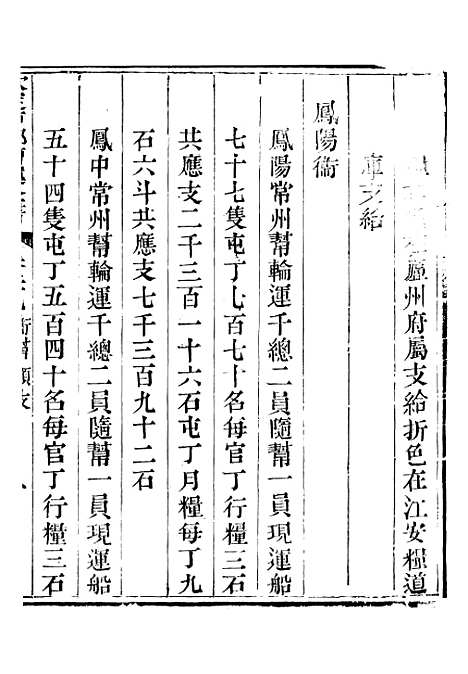 廬州府屬支給折色在江安糧道
庫支給
鳳陽衞
鳳陽常州幫輪運千總二員隨幫一員現運船
七十七隻屯丁七百七十名每官丁行糧三石
共應支二千三百一十六石屯丁月糧每丁九
石六斗共應支七千三百九十二石
鳳中常州幫輪運千總二員隨幫一員現運船
五十四隻屯丁五百四十名每官丁行糧三石
衞幫額支
八